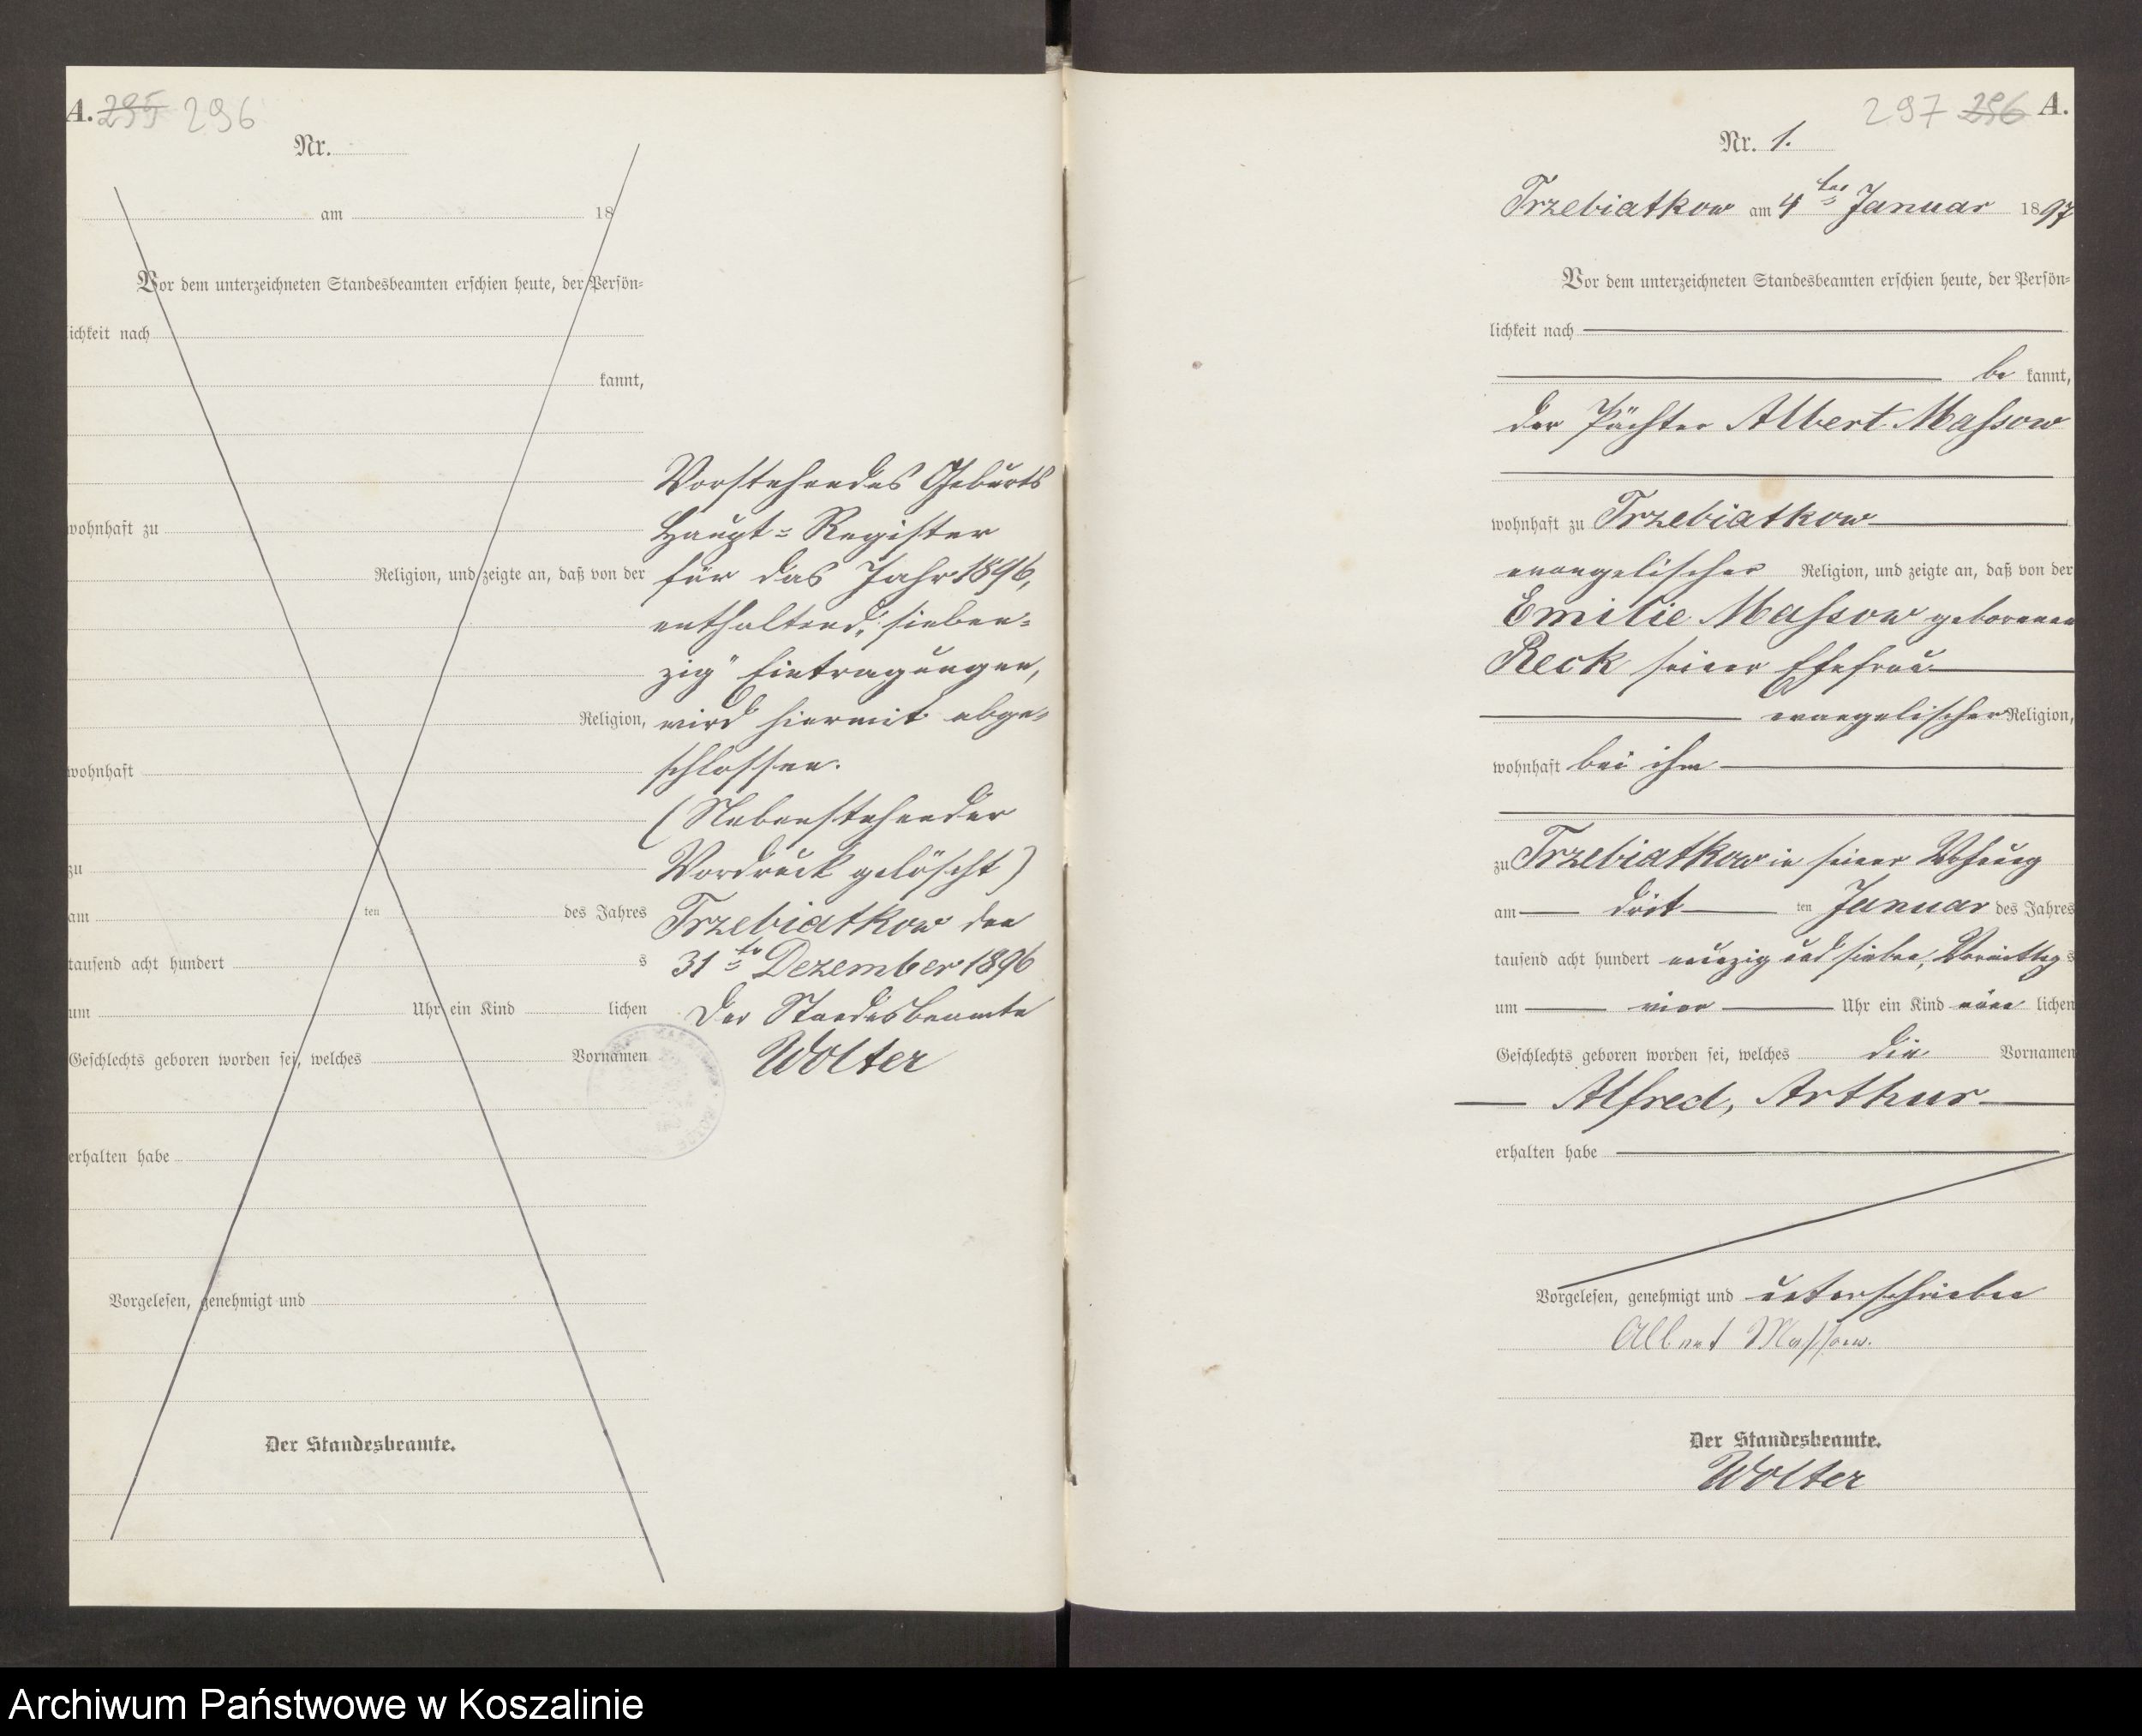 A. 295 296
Nr.
am 18
Vor dem unterzeichneten Standesbeamten erschien heute, der Persön-
lichkeit nach
kannt,
wohnhaft zu
Religion, und zeigte an, daß von der
Religion,
wohnhaft
zu
am ten des Jahres
tausend acht hundert s
um Uhr ein Kind lichen
Geschlechts geboren worden sei, welches Vornamen
erhalten habe
Vorgelesen, genehmigt und
Der Standesbeamte.
Vorstehendes Geburts
Haupt-Register
für das Jahr 1896,
enthaltend, "sieben-
zig" Eintragungen,
wird hiermit abge-
schlossen.
(Nebenstehender
Vordruck gelöscht)
Trzebiatkow den
31ten Dezember 1896
Der Standesbeamte
Wolter
297 296 A.
Nr. 1.
Trzebiatkow am 4ten Januar 1897
Vor dem unterzeichneten Standesbeamten erschien heute, der Persön-
lichkeit nach
be kannt,
der Pächter Albert Massow
wohnhaft zu Trzebiatkow
evangelischer Religion, und zeigte an, daß von der
Emilie Massow geborenen
Reck seiner Ehefrau
evangelischer Religion,
wohnhaft bei ihm
zu Trzebiatkow in seiner Wohnung
am drit ten Januar des Jahres
tausend acht hundert neunzig und sieben, Vormittag s
um vier Uhr ein Kind männ lichen
Geschlechts geboren worden sei, welches die Vornamen
Alfred, Arthur
erhalten habe
Vorgelesen, genehmigt und unterschrieben
Albert Massow.
Der Standesbeamte.
Wolter
Archiwum Państwowe w Koszalinie